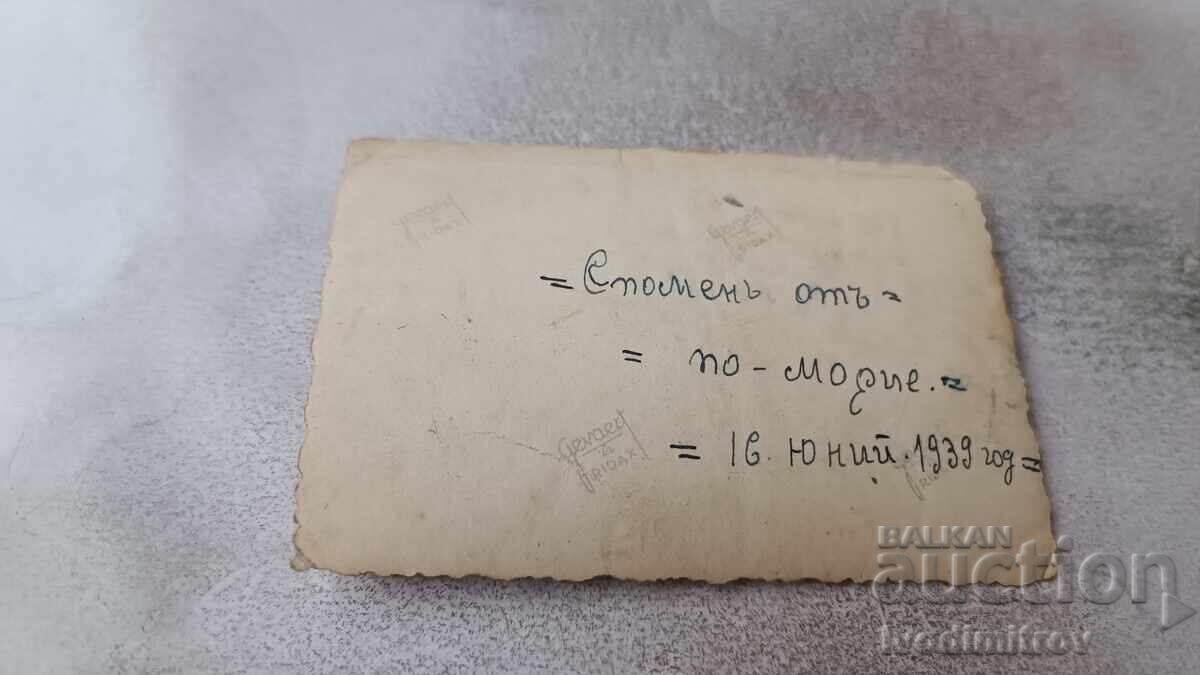 Gevaert
RIDAX
Gevaert
RIDAX
= Споменъ отъ =
= по-морие. =
Gevaert
RIDAX
= 16. Юний. 1939 год =
RIDAX
BALKAN
auction
Ivodimitrov